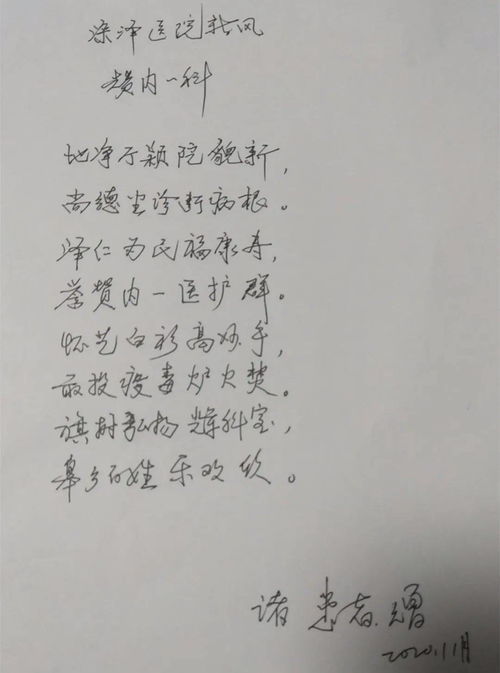 深泽医院新风
赞内一科
地净厅颖院貌新，
尚德坐诊断病根。
泽仁为民福康寿，
举赞内一医护群。
怀艺白衫高妙手，
敢投疫毒炉火焚。
旗树弘扬兴科室，
举乡百姓乐欢欣。
诸患者.赠
2020.11月